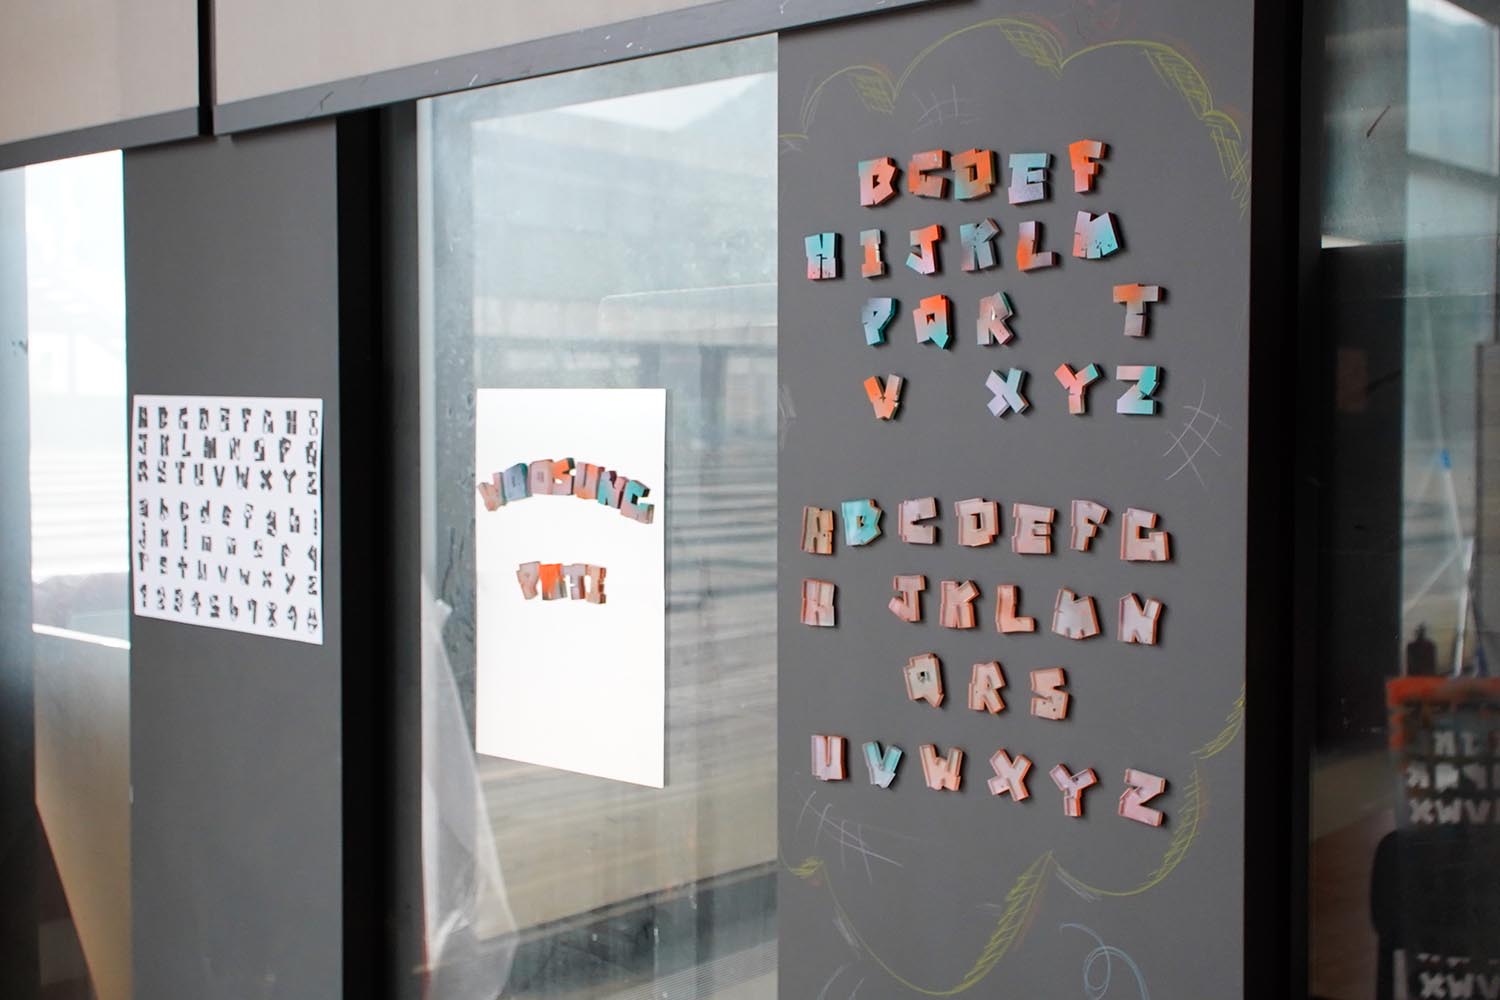 A B C D E F G H I
J K L M N O P Q
R S T U V W X Y Z
a b c d e f g h i
j k l m n o p q
r s t u v w x y z
1 2 3 4 5 6 7 8 9 0
B C D E F
H I J K L M
P Q R T
V X Y Z
A B C D E F G
H J K L M N
Q R S
U V W X Y Z